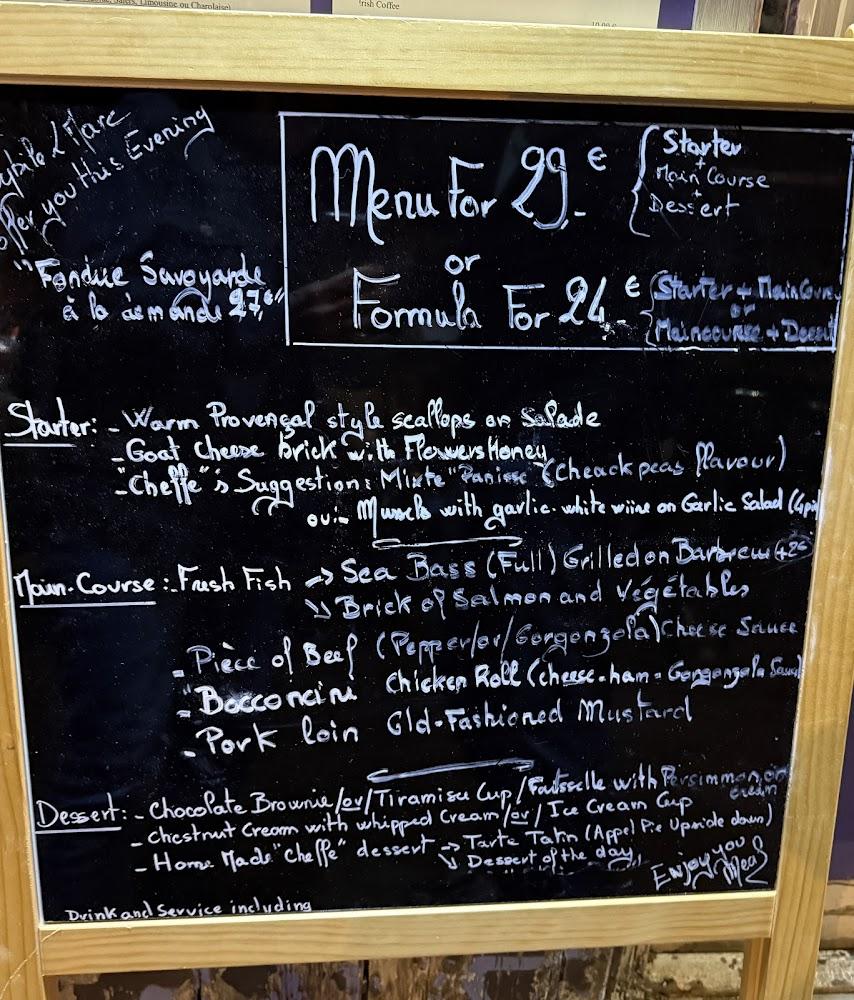 Salers, Limousine ou Charolaise)
Irish Coffee
10.00 €
& Mare
you this Evening
"Fondue Savoyarde
à la demande 27,€"
Menu For 29.- €
Starter
+
Main Course
+
Dessert
or
Formula For 24.- €
Starter + Main Cour
or
Maincourse + Dessert
Starter: - Warm Provençal style scallops on Salade
- Goat Cheese Brick with Flowers Honey
- "Cheffe"'s Suggestion: Mixte "Panisse" (cheack peas flavour)
ou:- Muscls with garlic. white wiine on Garlic Salad (4pi
Main.Course :. Fresh Fish → Sea Bass (Full) Grilled on Barbrew (+2€)
↘ Brick of Salmon and Végétables
- Pièce of Beef (Pepper/or/Gorgonzola) Cheese Sauce
- "Bocconcini Chicken Roll (cheese-ham-Gorgonzola Sauce)
- Pork loin Old-Fashioned Mustard
Dessert: - Chocolate Brownie/or/Tiramisu Cup/Faisselle with Persimmon or
cream
- Chestnut Cream with whipped Cream/or/Ice Cream Cup
- Home Made "Cheffe" dessert → Tarte Tatin (Appel Pie Upside down)
↘ Dessert of the day
Enjoy you
Meal
Drink and Service including